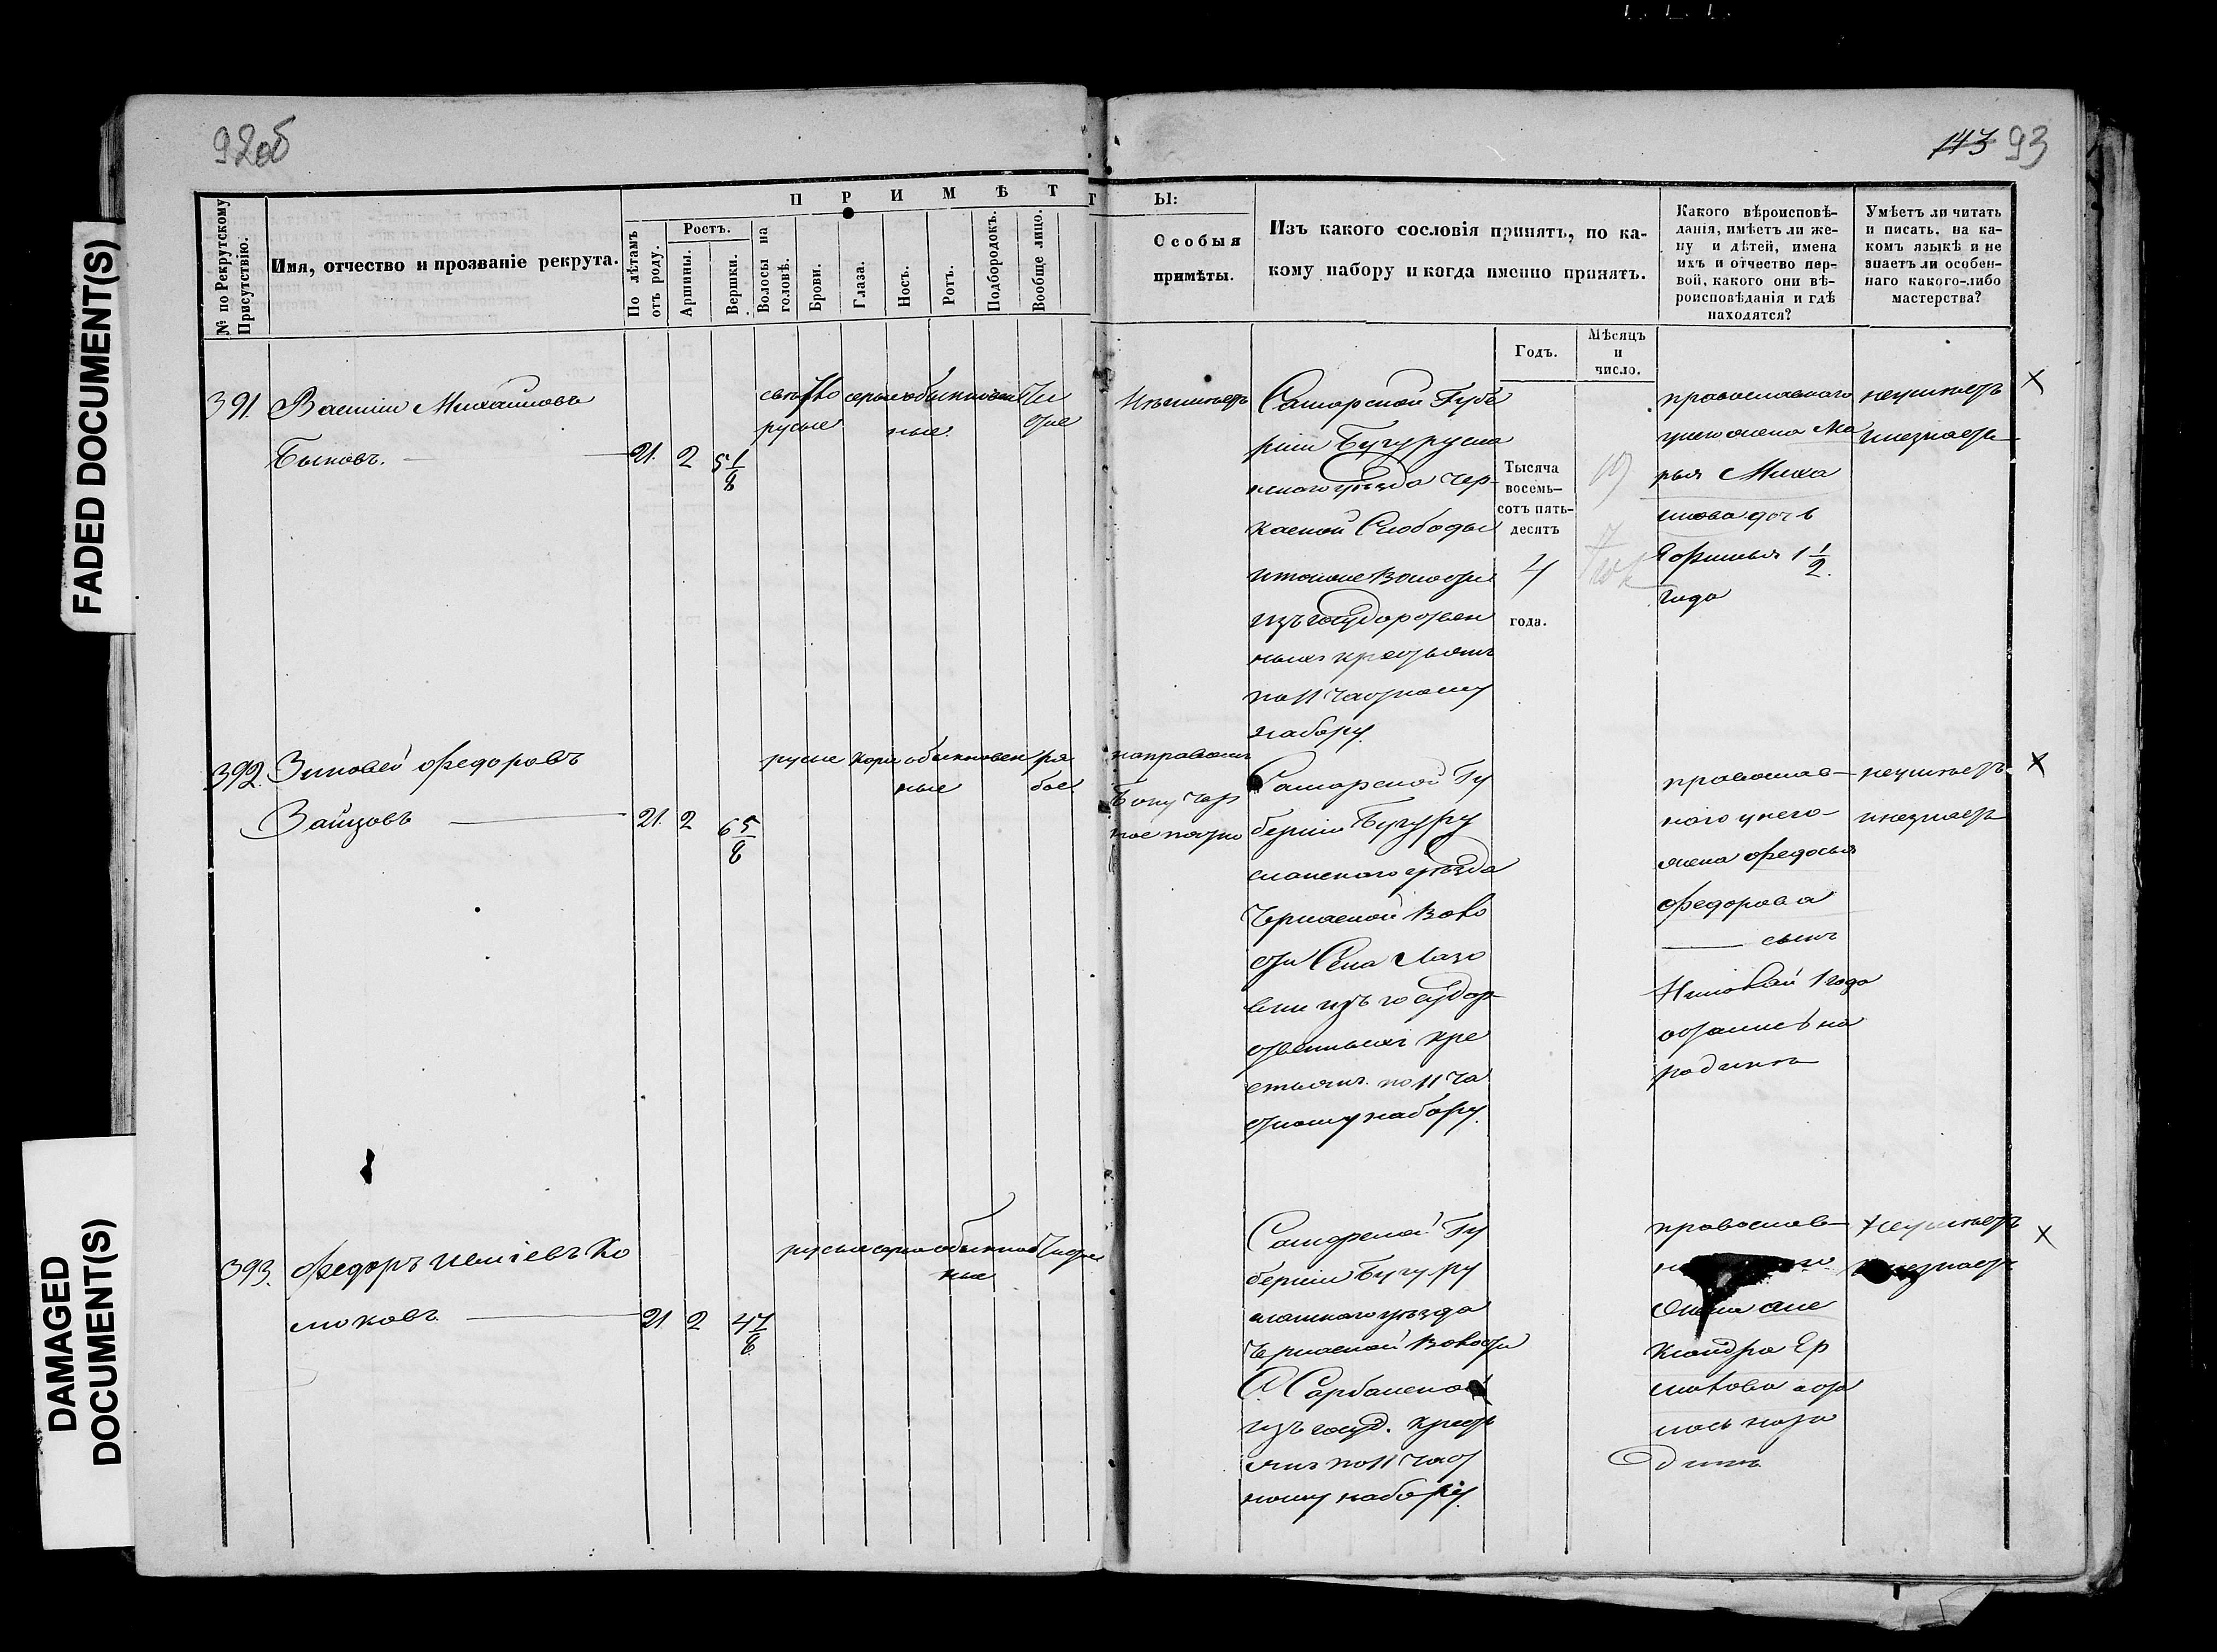 92об
143 93
П Р И М Ѣ Т Ы:
№ по Рекрутскому Присутствію.
Имя, отчество и прозваніе рекрута.
По лѣтамъ отъ роду.
Ростъ.
Аршины.
Вершки.
Волосы на головѣ.
Брови.
Глаза.
Носъ.
Ротъ.
Подбородокъ.
Вообще лицо.
Особыя
примѣты.
Изъ какого сословія принятъ, по ка-
кому набору и когда именно принятъ.
Какого вѣроисповѣ-
данія, имѣетъ ли же-
ну и дѣтей, имена
ихъ и отчество пер-
вой, какого они вѣ-
роисповѣданія и гдѣ
находятся?
Умѣетъ ли читать
и писать, на ка-
комъ языкѣ и не
знаетъ ли особен-
наго какого-либо
мастерства?
Годъ.
Мѣсяцъ
и
число.
391. Василіи Михаиловъ
Быковъ.
21. 2 5 1/8
светло
русые
серые обыкновен
ные
чи
стое
Неимѣетъ
Самарской Губе
рніи Бугурусла
нскаго уѣзда Чер-
каской Слободы
итойже Волости
изъ государствен
ныхъ крестьянъ
по 11 частному
набору
Тысяча
восемь-
сотъ пять-
десятъ
4
года.
православнаго
унего жена Ма
рья Миха
илова дочь
1 1/2
года
неумѣетъ
инезнаетъ
X
392. Зиновей Федоровъ
Зайцовъ
21. 2 6 5/8
русые каріе обыкновен
ные
ря
бое
направомъ
Боку чер
ное пятно
Самарской Гу
берніи Бугуру
сланскаго уѣзда
Черкаской Воло
сти Села Лазо
вки изъ государ-
ственныхъ кре
стьянъ по 11 ча
стному набору.
православ-
наго унего
жена Федосья
Федорова
сынъ
Николай 1 года
остались на
родинѣ
неумѣетъ
инезнаетъ
X
393. Федоръ Ко
моковъ
21 2 4 7/8
русые серые обыкнов
ные
Чистое
Самарской Гу
берніи Бугуру
сланскаго уѣзда
Черкаской Волости
С. Сарбайской
изъ госуд. крест
янъ по 11 част
ному набору.
православ-
Жена Але
ксандра Ер
молова оста
лась наро
динѣ
Неумѣетъ
инезнаетъ
X
FADED DOCUMENT(S)
DAMAGED
DOCUMENT(S)